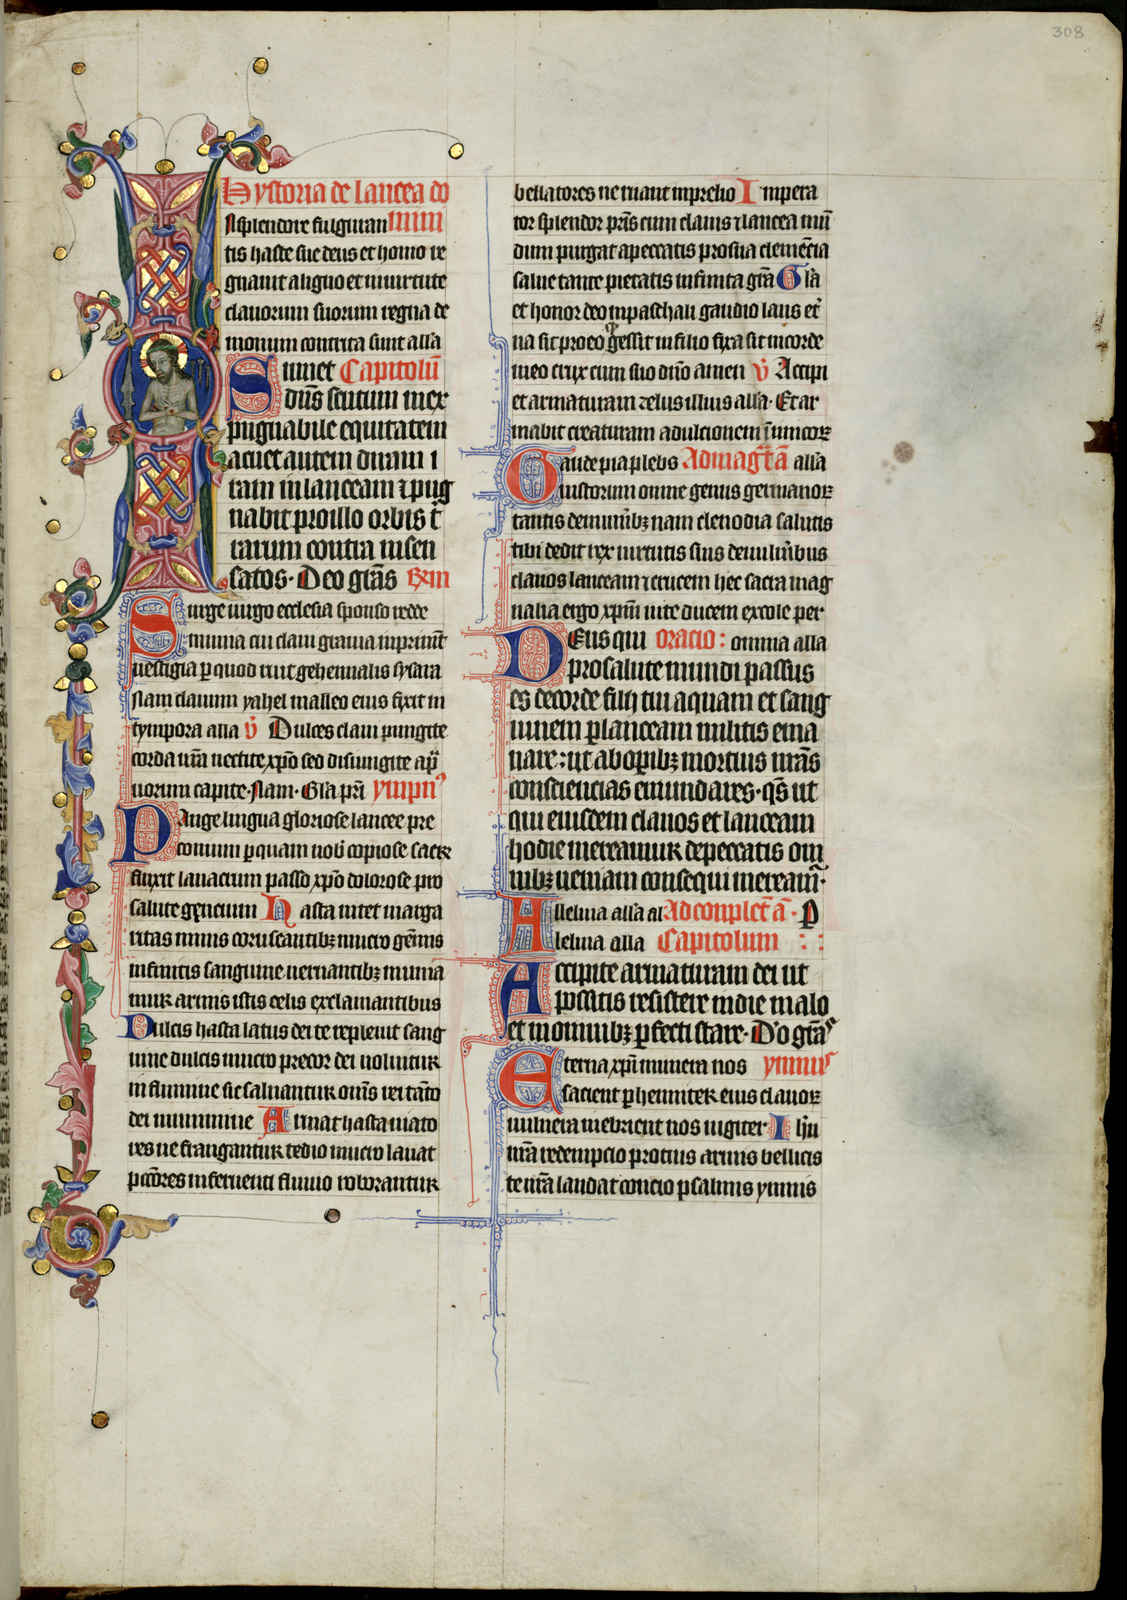 308
Hystoria de lancea do
N splendore fulguran mini
tis haste sue deus et homo re
gnauit a ligno et in uirtute
clauorum suorum regna de
monum contrita sunt alla
Sumet Capitolū
dn̄s scutum inex
pugnabile equitatem
acuet autem diram i
ram in lanceam ⁊ pug
nabit pro illo orbis t̄
rarum contra insen
satos · Deo grās
Surge uirgo ecclesia sponso rede
munita cui claui grauia inprimūt
uestigia ꝑ quod ruit gehennalis sysara
Nam clauum yahel malleo eius fixit in
tympora alla v̄ Dulces claui pungite
corda nr̄a nectite xp̄o sed disiungite a
uorum capite · Nam · Gl̄a pr̄i ympnꝰ
Pange lingua gloriose lancee pre
conium ꝑ quam nob̄ copiose sacrꝝ
fluxit lauacrum passo xp̄o dolorose pro
salute gencium Hasta nitet marga
ritas nimis coruscantibꝫ mucro gēmis
infinitis sanguine uernantibꝫ muni
mur armis istis celis exclamantibus
Dulcis hasta latus dei te repleuit sang
uine dulcis mucro precor dei uoluitur
in flumine sic saluantur om̄s rei tāto
dei munimine Armat hasta uiato
res ne frangantur tedio mucro lauat
pcc̄ores in feruenti fluuio roborantur
bellatores ne ruant in prelio Impera
tor splendor pr̄is cum clauis ⁊ lancea mū
dum purgat a peccatis pro sua clemēcia
salue tante pietatis infinita grā Gl̄a
et honor deo in paschali gaudio laus et̄
na sit pro eo ꝙ gessit in filio fixa sit in corde
meo crux cum suo dn̄o amen v̄ Accipi
et armaturam zelus illius alla · Et ar
mabit creaturam ad ulcionem inimicoꝝ
Gaude pia plebs Ad magt̄ā alla
iustorum omne genus germanoꝝ
tantis de munībꝫ nam clenodia salutis
tibi dedit rex uirtutis suis de uulnībus
clauos lanceam ⁊ crucem hec sacra mag
nalia ergo xp̄m uite ducem excole per
Deus qui oracio : omnia alla
pro salute mundi passus
es de corde filij tui aquam et sang
uinem ꝑ lanceam militis ema
nare : ut ab oꝑibꝫ mortuis nr̄as
consciencias emundares · qs̄ ut
qui eiusdem clauos et lanceam
hodie mereamur de peccatis om
nibꝫ ueniam consequi mereamꝰ ·
Alleluia alla al Ad conplet̄ a · P
leluia alla Capitolum : :
Accipite armaturam dei ut
possitis resistere in die malo
et in omnibꝫ ꝑfecti stare · Do grās
Eterna xp̄i munera nos ymnus
sacient ꝑhenniter eius clauoꝝ
uulnera inebrient nos iugiter Ihū
nr̄a redempcio protius armis bellicis
te nr̄a laudat concio psalmis ymnis